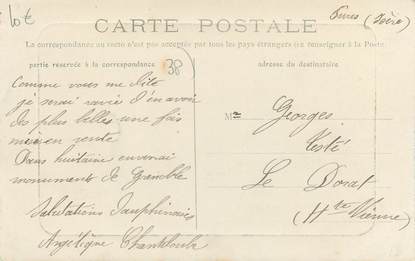 lot
Tires (Isère)
CARTE POSTALE
La correspondance au recto n'est pas acceptée par tous les pays étrangers (se renseigner à la Poste
partie réservée à la correspondance
adresse du destinataire
38
Comme vous me dite
je serai ravie d'en avoir
des plus belles une fois
mise en vente
Dans huitaine enverrai
monuments de Grenoble
Salutations Dauphinoises
Angélique
M
Georges
Le Dorat
(Hte Vienne)